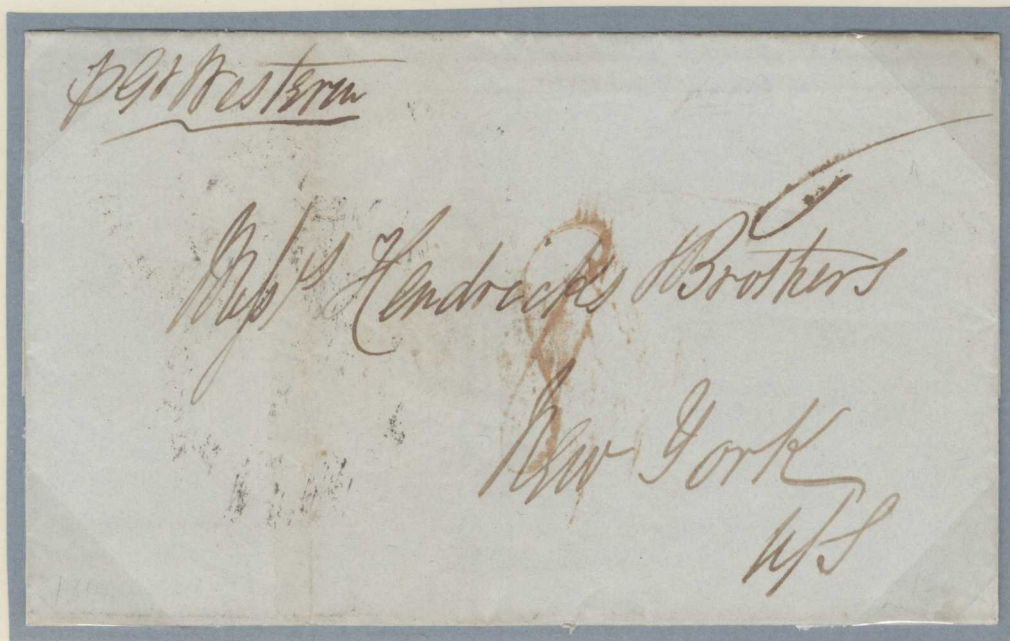 p Gt Western
Messrs Hendricks & Brothers
New York
U/S